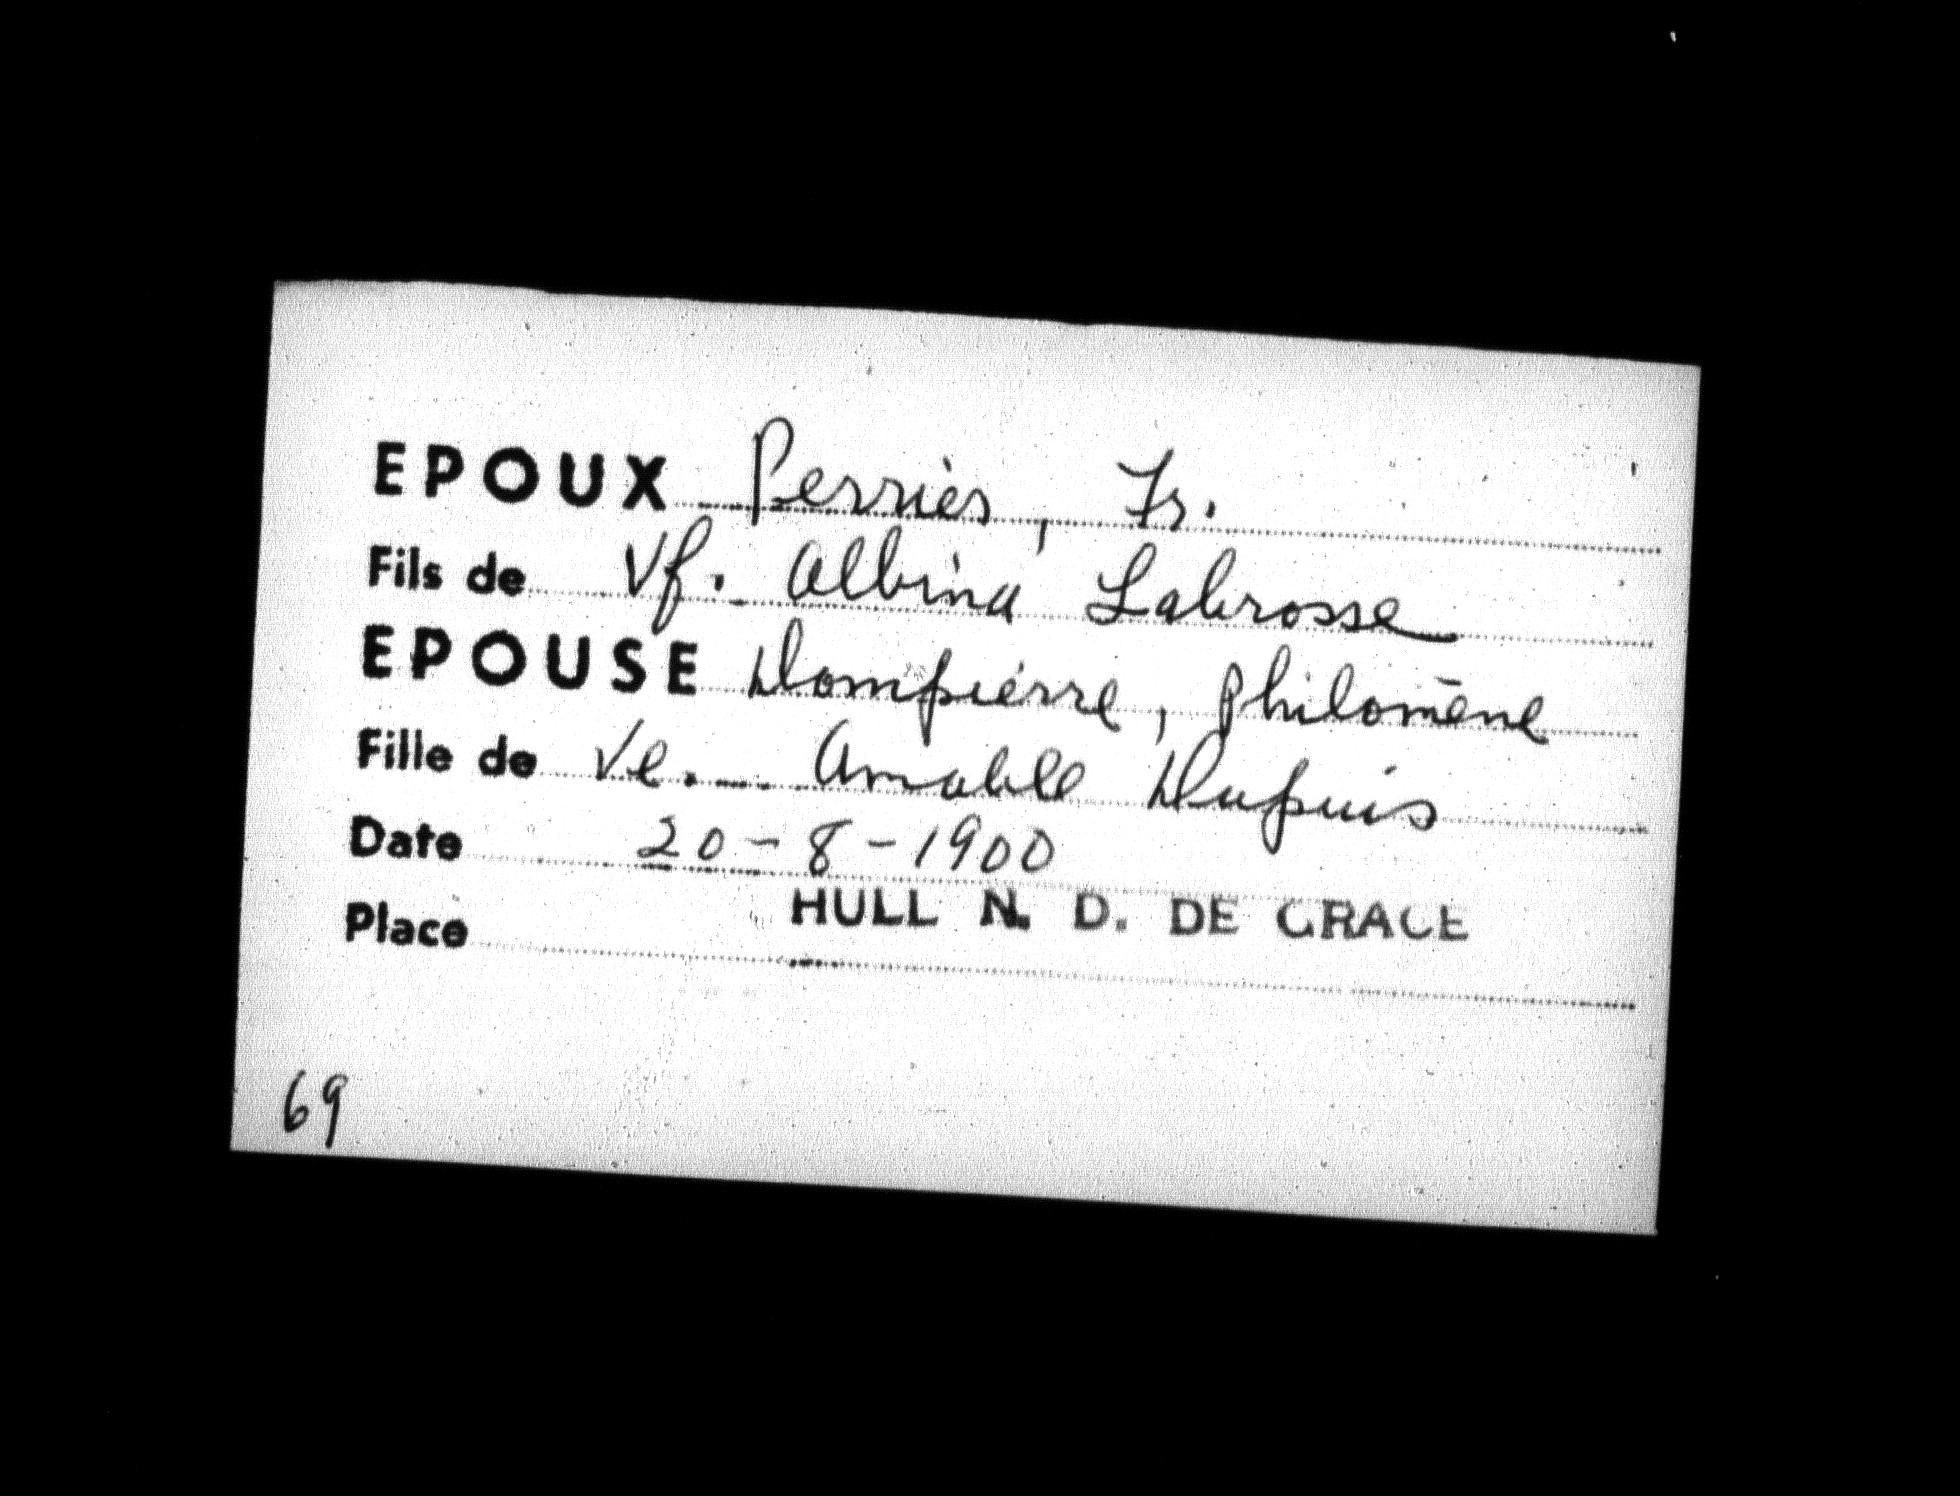 EPOUX Perrier, Fr.
Fils de Vf. Albina Labrosse
EPOUSE Dompierre, Philomène
Fille de Ve. Amable Dupuis
Date 20-8-1900
Place HULL N. D. DE GRACE
69